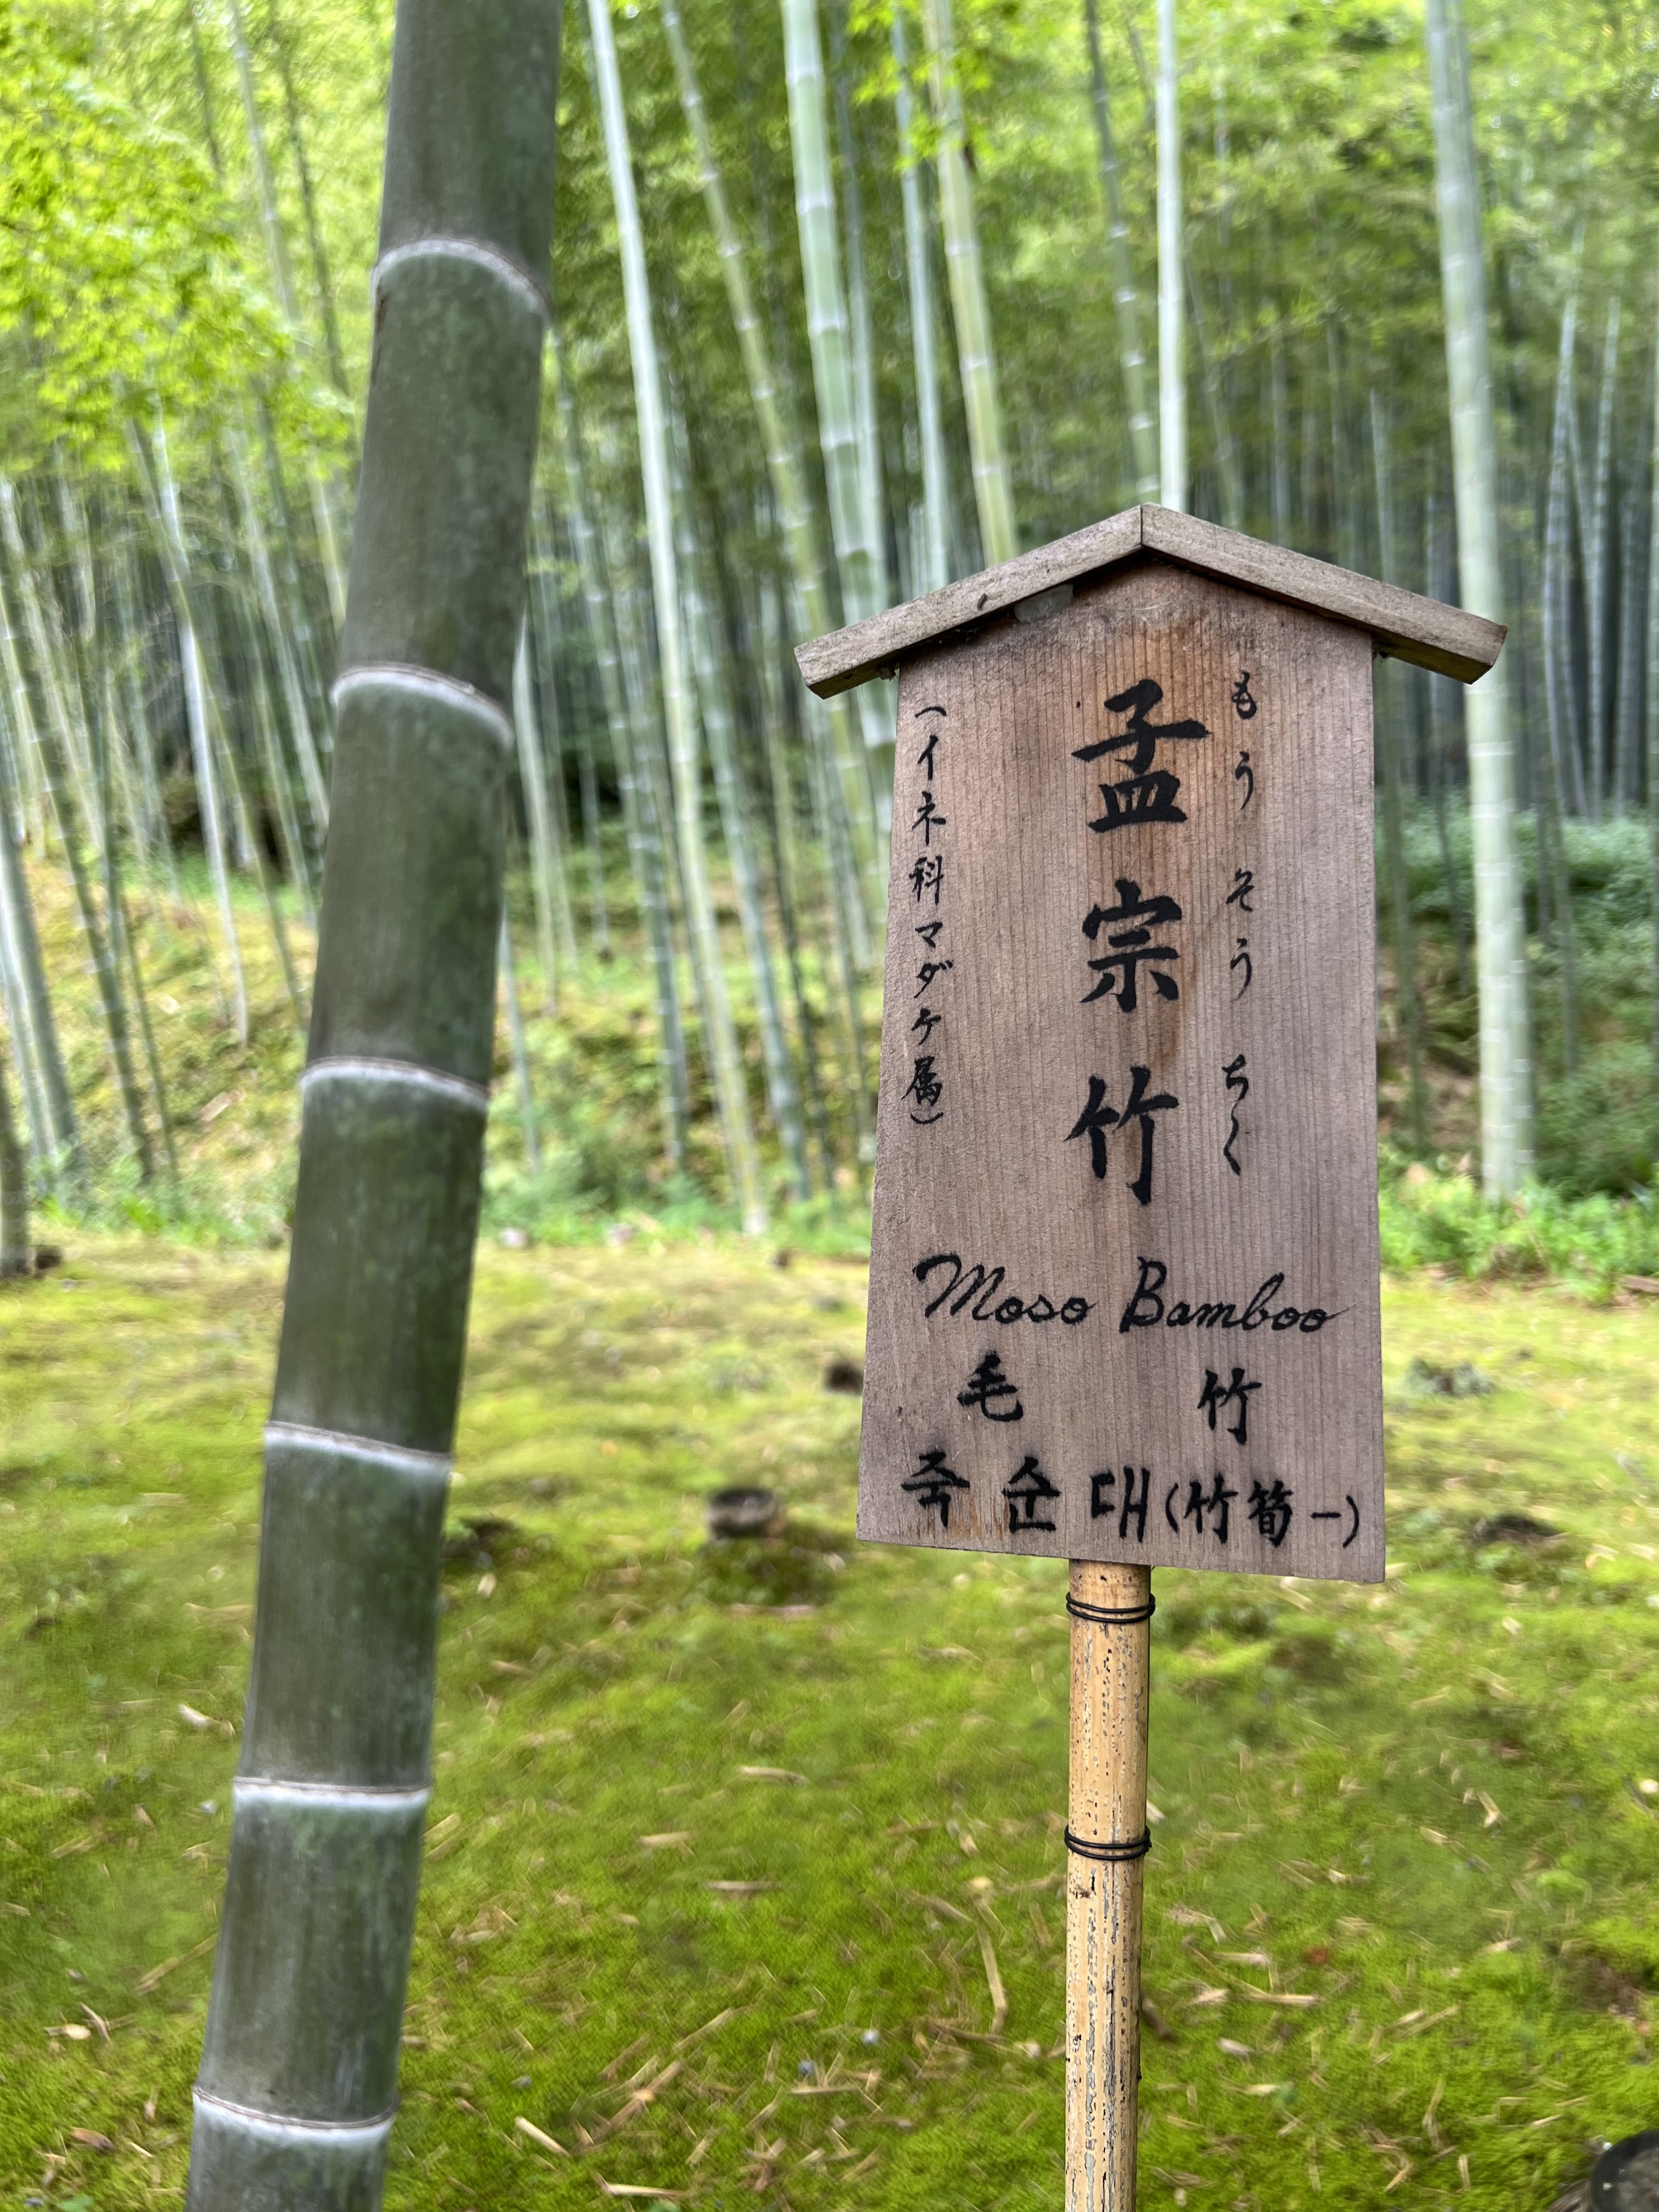 もうそうちく
孟宗竹
（イネ科マダケ属）
Moso Bamboo
毛竹
죽순대(竹筍一)